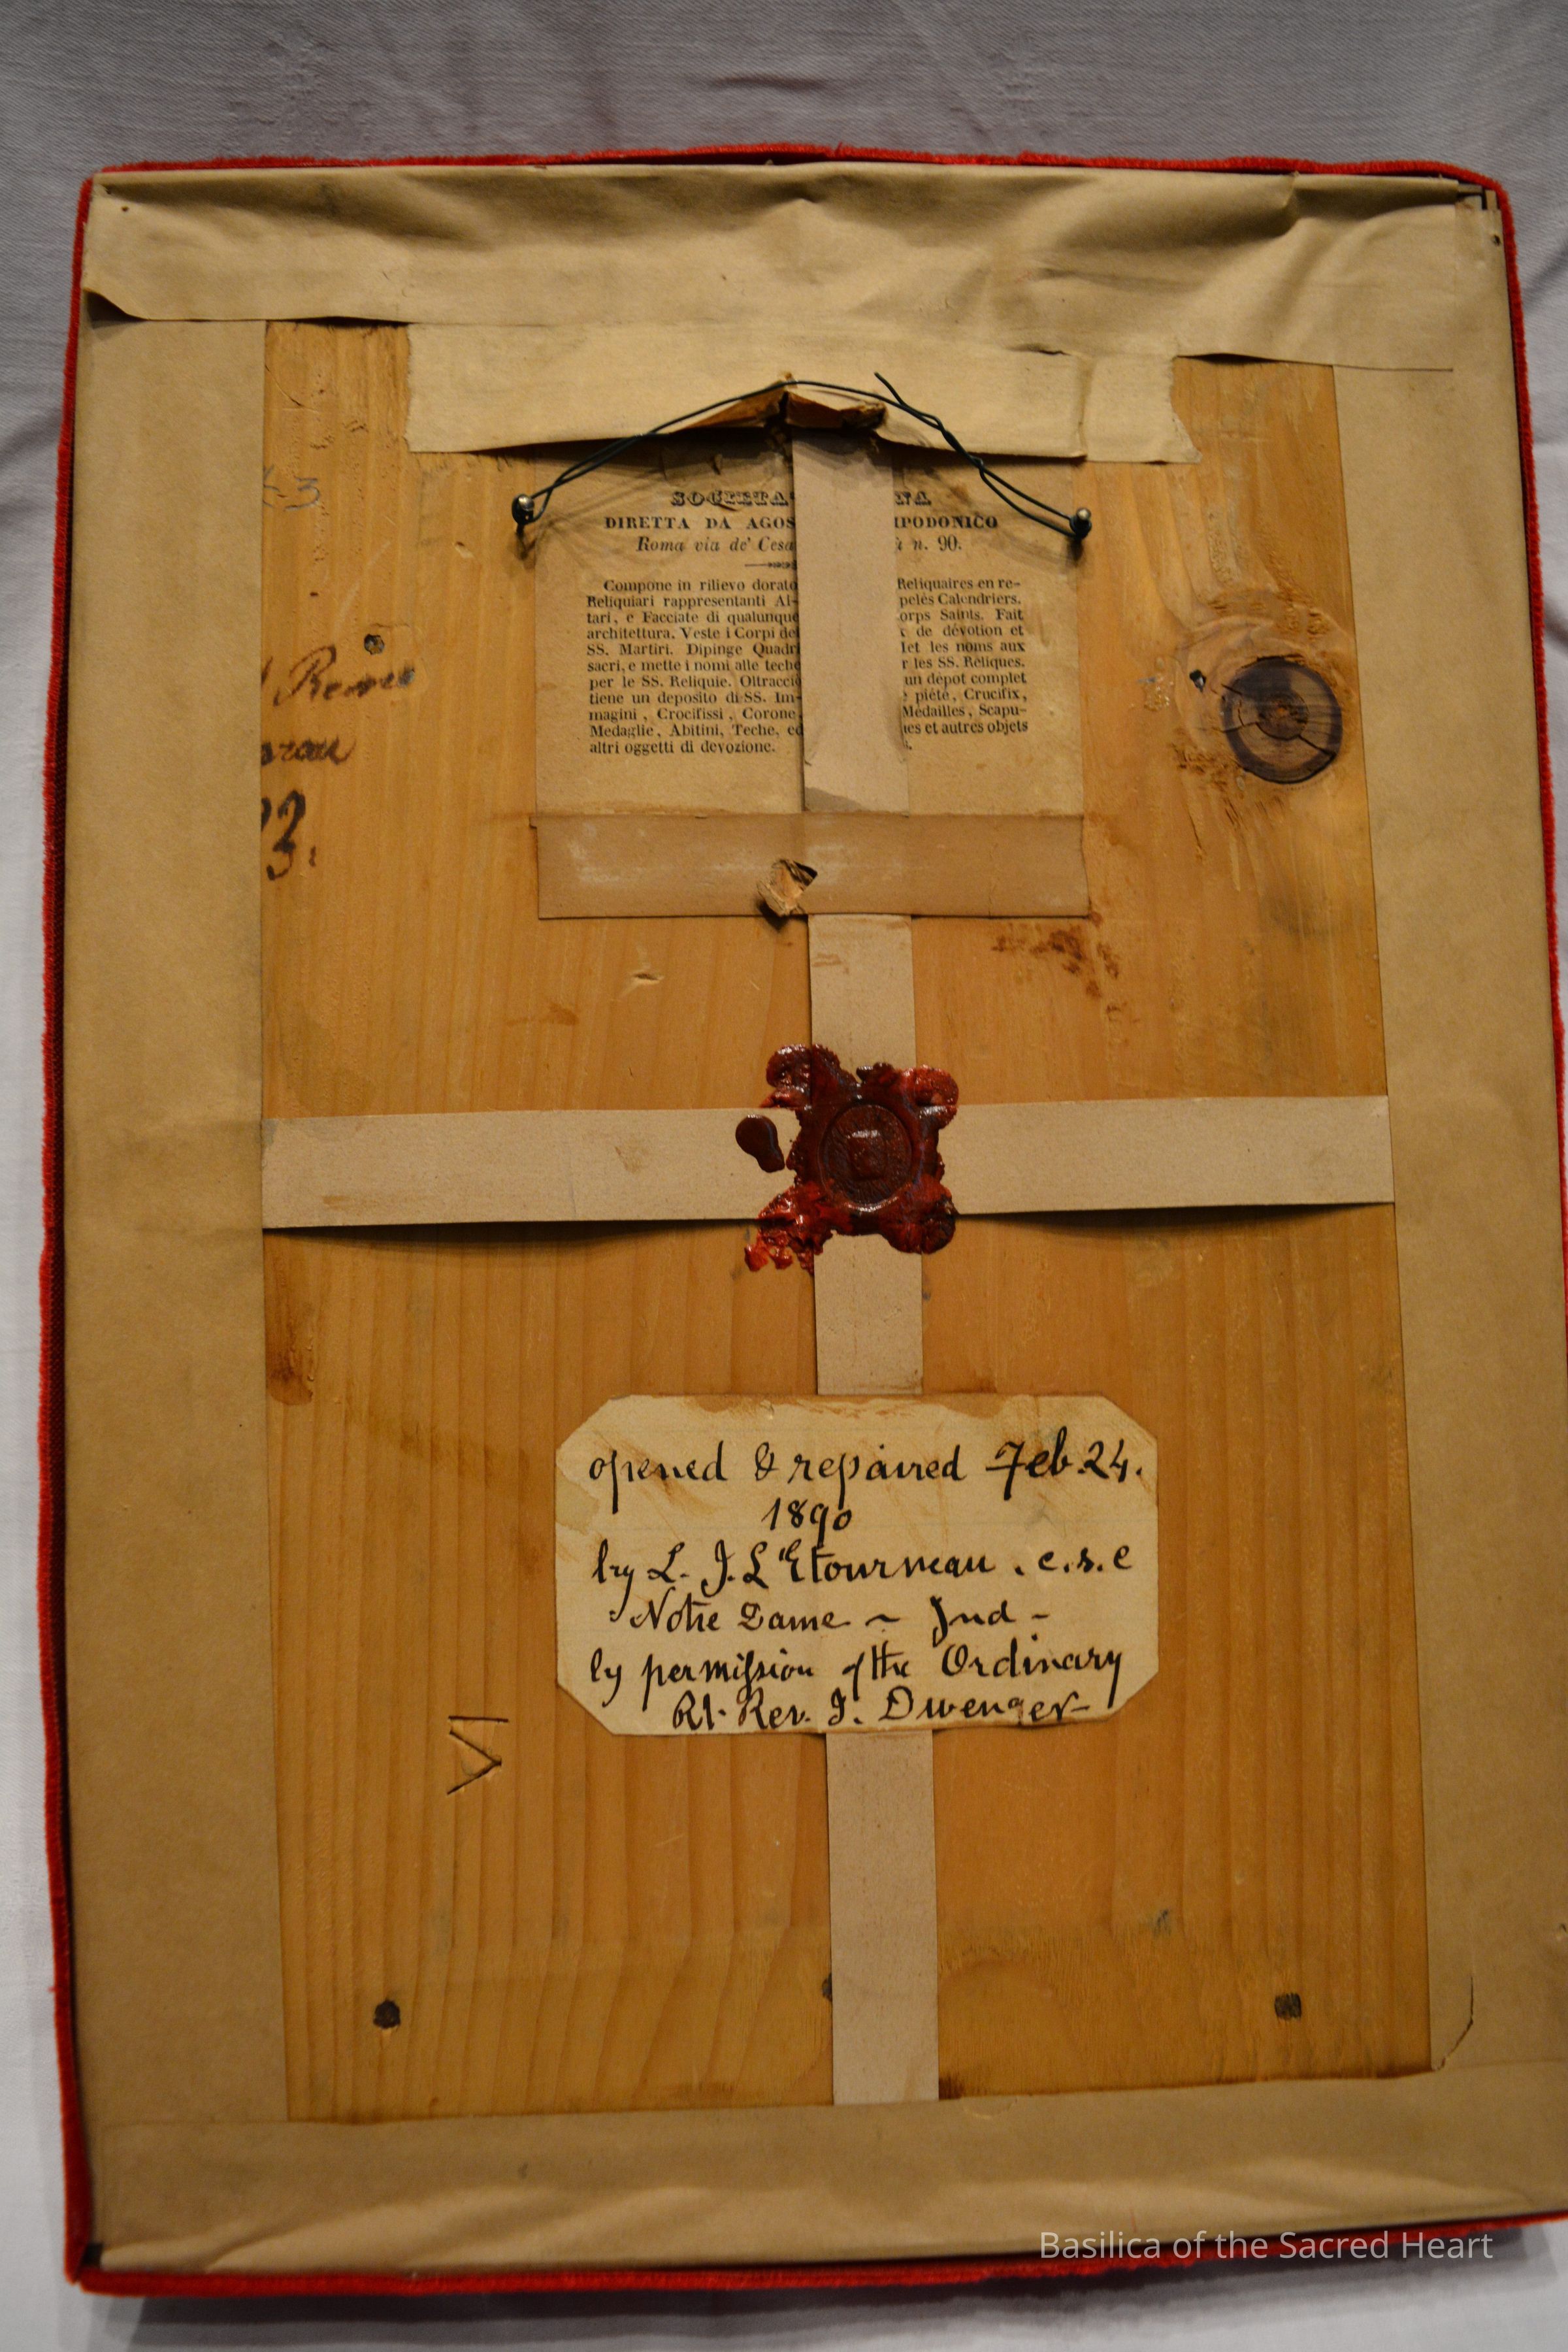 SOCIETA NA
DIRETTA DA AGOS MPODONICO
Roma via de' Cesa n. 90.
Compone in rilievo dorato
Reliquiari rappresentanti Al-
tari, e Facciate di qualunque
architettura. Veste i Corpi de
SS. Martiri. Dipinge Quadri
sacri, e mette i nomi alle teche
per le SS. Reliquie. Oltracciò
tiene un deposito di SS. Im-
magini, Crocifissi, Corone,
Medaglie, Abitini, Teche, ed
altri oggetti di devozione.
Reliquaires en re-
pelés Calendriers.
orps Saints. Fait
de dévotion et
Met les noms aux
r les SS. Réliques.
un dépot complet
piété, Crucifix,
Médailles, Scapu-
es et autres objets
Rome
3.
opened & repaired Feb. 24.
1890
by L. J. L'Etourneau . c.s.c
Notre Dame ~ Ind -
by permission of the Ordinary
Rt. Rev. J. Dwenger
VI
Basilica of the Sacred Heart